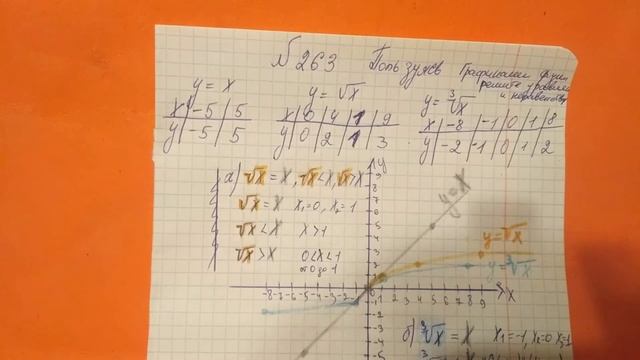 №263 Пользуясь Графиками функ
решите уравнен
и неравенства
y = x
x -5 5
y -5 5
y = √x
x 0 4 1 9
y 0 2 1 3
y = ³√x
x -8 -1 0 1 8
y -2 -1 0 1 2
а) √x = x, √x < x, √x > x
√x = x x₁=0, x₂=1
√x < x x>1
√x > x 0<x<1
от 0 до 1
y
y=x
y=√x
y=³√x
x
-8 -7 -6 -5 -4 -3 -2
б) ³√x = x x₁=-1, x₂=0 x₃=1